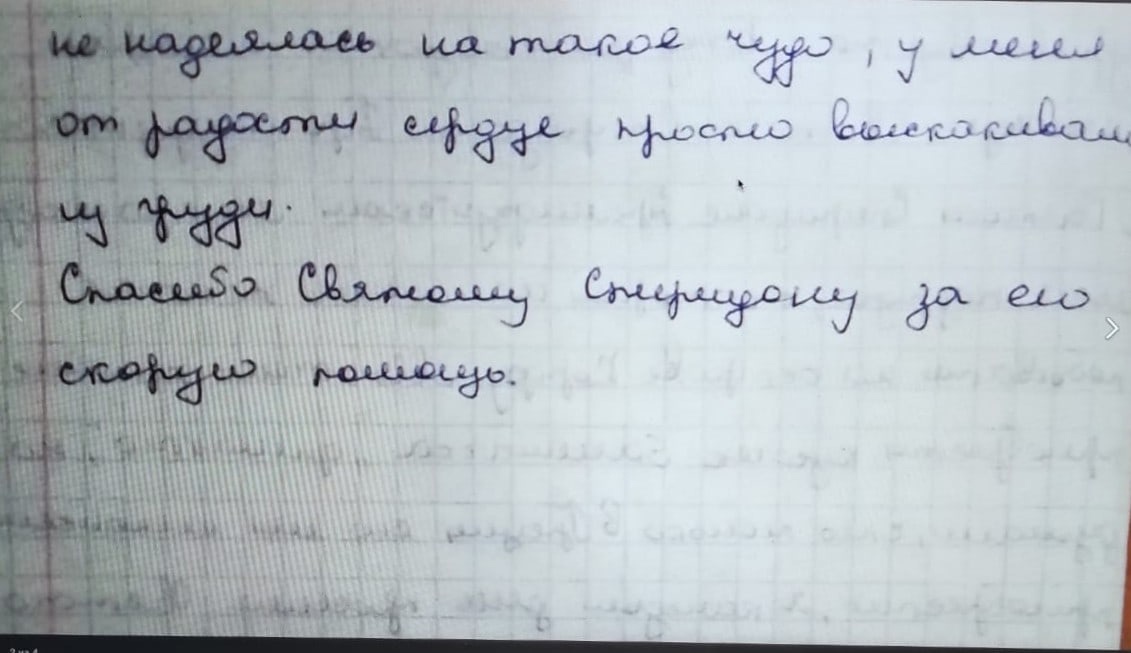 не надеялась на такое чудо, у меня
от радости сердце просто выскакивал
из груди.
Спасибо Святому Спиридону за его
скорую помощь.